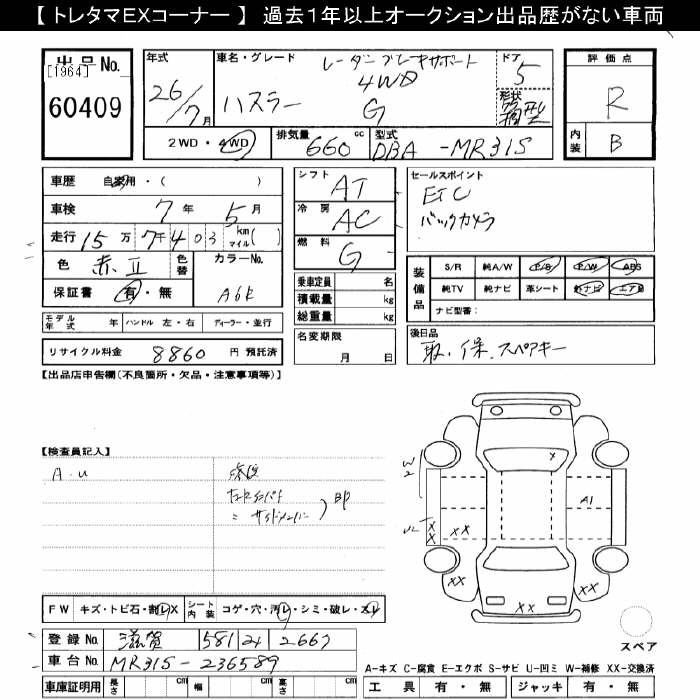 【 トレタマEXコーナー 】 過去1年以上オークション出品歴がない車両
出品No.
[1964]
60409
年式
26/7月
車名・グレード
レーダーブレーキサポート
ハスラー
4WD
G
ドア
5
形状
箱型
評価点
R
内装
B
2WD・4WD
排気量
660 cc
型式
DBA -MR31S
車歴 自家用・( )
車検 7年 5月
走行 15万7千403 km マイル( )
色 赤II
色替
カラーNo.
A6K
保証書 有・無
モデル年式 年
ハンドル 左・右
ディーラー・並行
リサイクル料金 8860 円 預託済
シフト AT
冷房 AC
燃料 G
乗車定員 名
積載量 kg
総重量 kg
名変期限
月 日
セールスポイント
ETC
バックカメラ
装備品
S/R 純A/W P/S P/W ABS
純TV 純ナビ 革シート 社ナビ エアB
ナビ型番:
後日品
取.保.スペアキー
【出品店申告欄(不良箇所・欠品・注意事項等)】
【検査員記入】
A.U
修復
サイドメンバー
BP
W2
U2
XX
XX
X
A1
XX
XX
XX
FW キズ・トビ石・割レX
シート内装 コゲ・穴・汚レ・シミ・破レ・スレ
登録No. 滋賀 581 24 2667
車台No. MR31S-236589
車庫証明用 長さ cm 幅 cm 高さ cm
スペア
A-キズ C-腐食 E-エクボ S-サビ U-凹ミ W-補修 XX-交換済
工具 有・無 ジャッキ 有・無